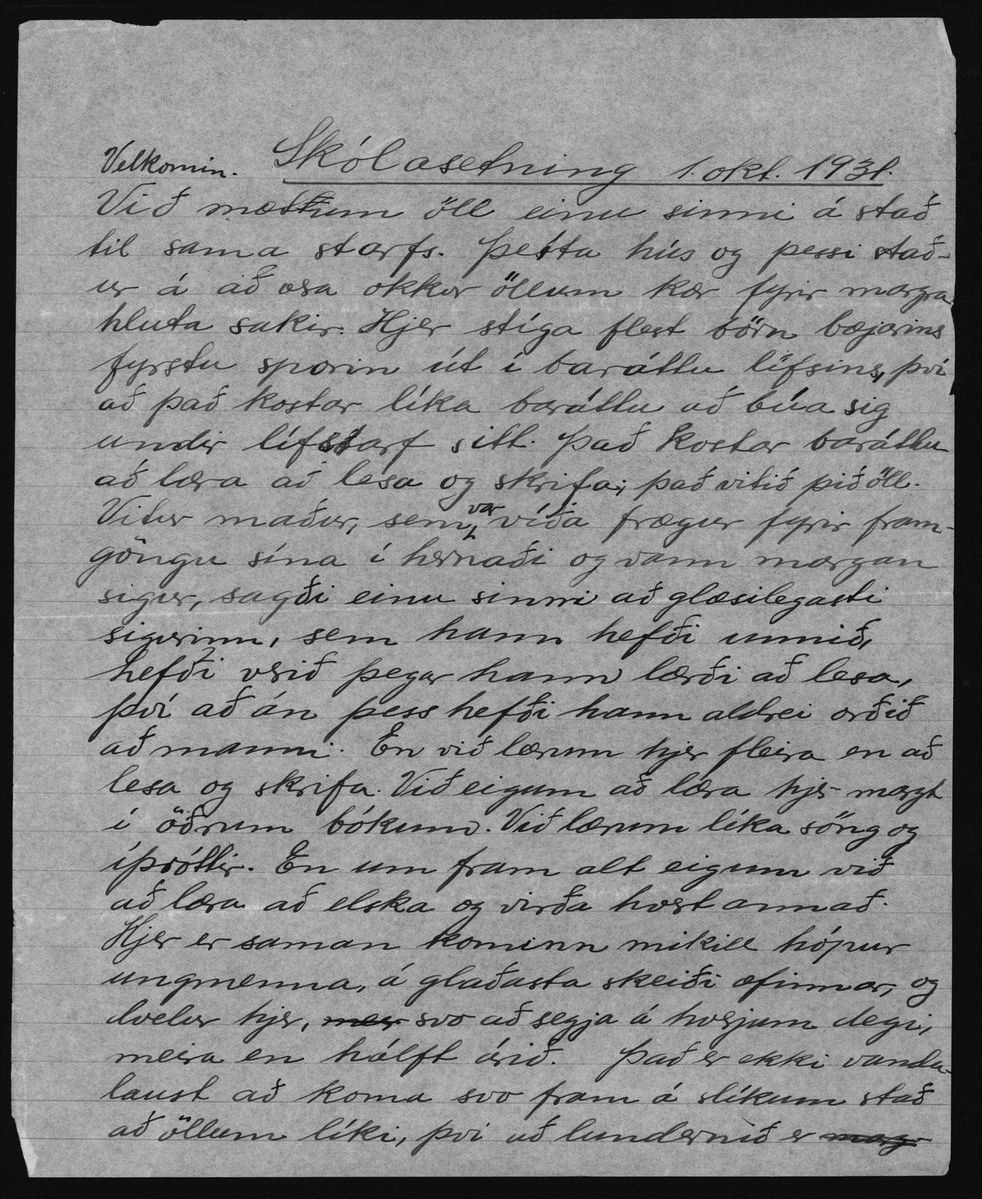 Velkomin. Skólasetning 1. okt. 1931.
Við mætum öll einu sinni á stað
til sama starfs. Þetta hús og þessi stað-
ur á að vera okkur öllum kær fyrir margra
hluta sakir. Hjer stíga flest börn bæjarins
fyrstu sporin út í baráttu lífsins, því
að það kostar líka baráttu að búa sig
undir lífstarf sitt. Það kostar baráttu
að læra að lesa og skrifa; það vitið þið öll.
Vitur maður, sem var víða frægur fyrir fram-
göngu sína í hernaði og vann margan
sigur, sagði einu sinni að glæsilegasti
sigurinn, sem hann hefði unnið,
hefði verið þegar hann lærði að lesa,
því að án þess hefði hann aldrei orðið
að manni. En við lærum hjer fleira en að
lesa og skrifa. Við eigum að læra hjer margt
í öðrum bókum. Við lærum líka söng og
íþróttir. En um fram alt eigum við
að læra að elska og virða hvert annað.
Hjer er saman kominn mikill hópur
ungmenna, á glaðasta skeiði æfinnar, og
dvelur hjer, svo að segja á hverjum degi,
meira en hálft árið. Það er ekki vanda-
laust að koma svo fram á slíkum stað
að öllum líki, því að lundernið er